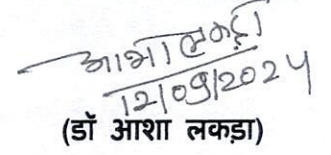 आशा लकड़ा
12/09/2024
(डॉ आशा लकड़ा)